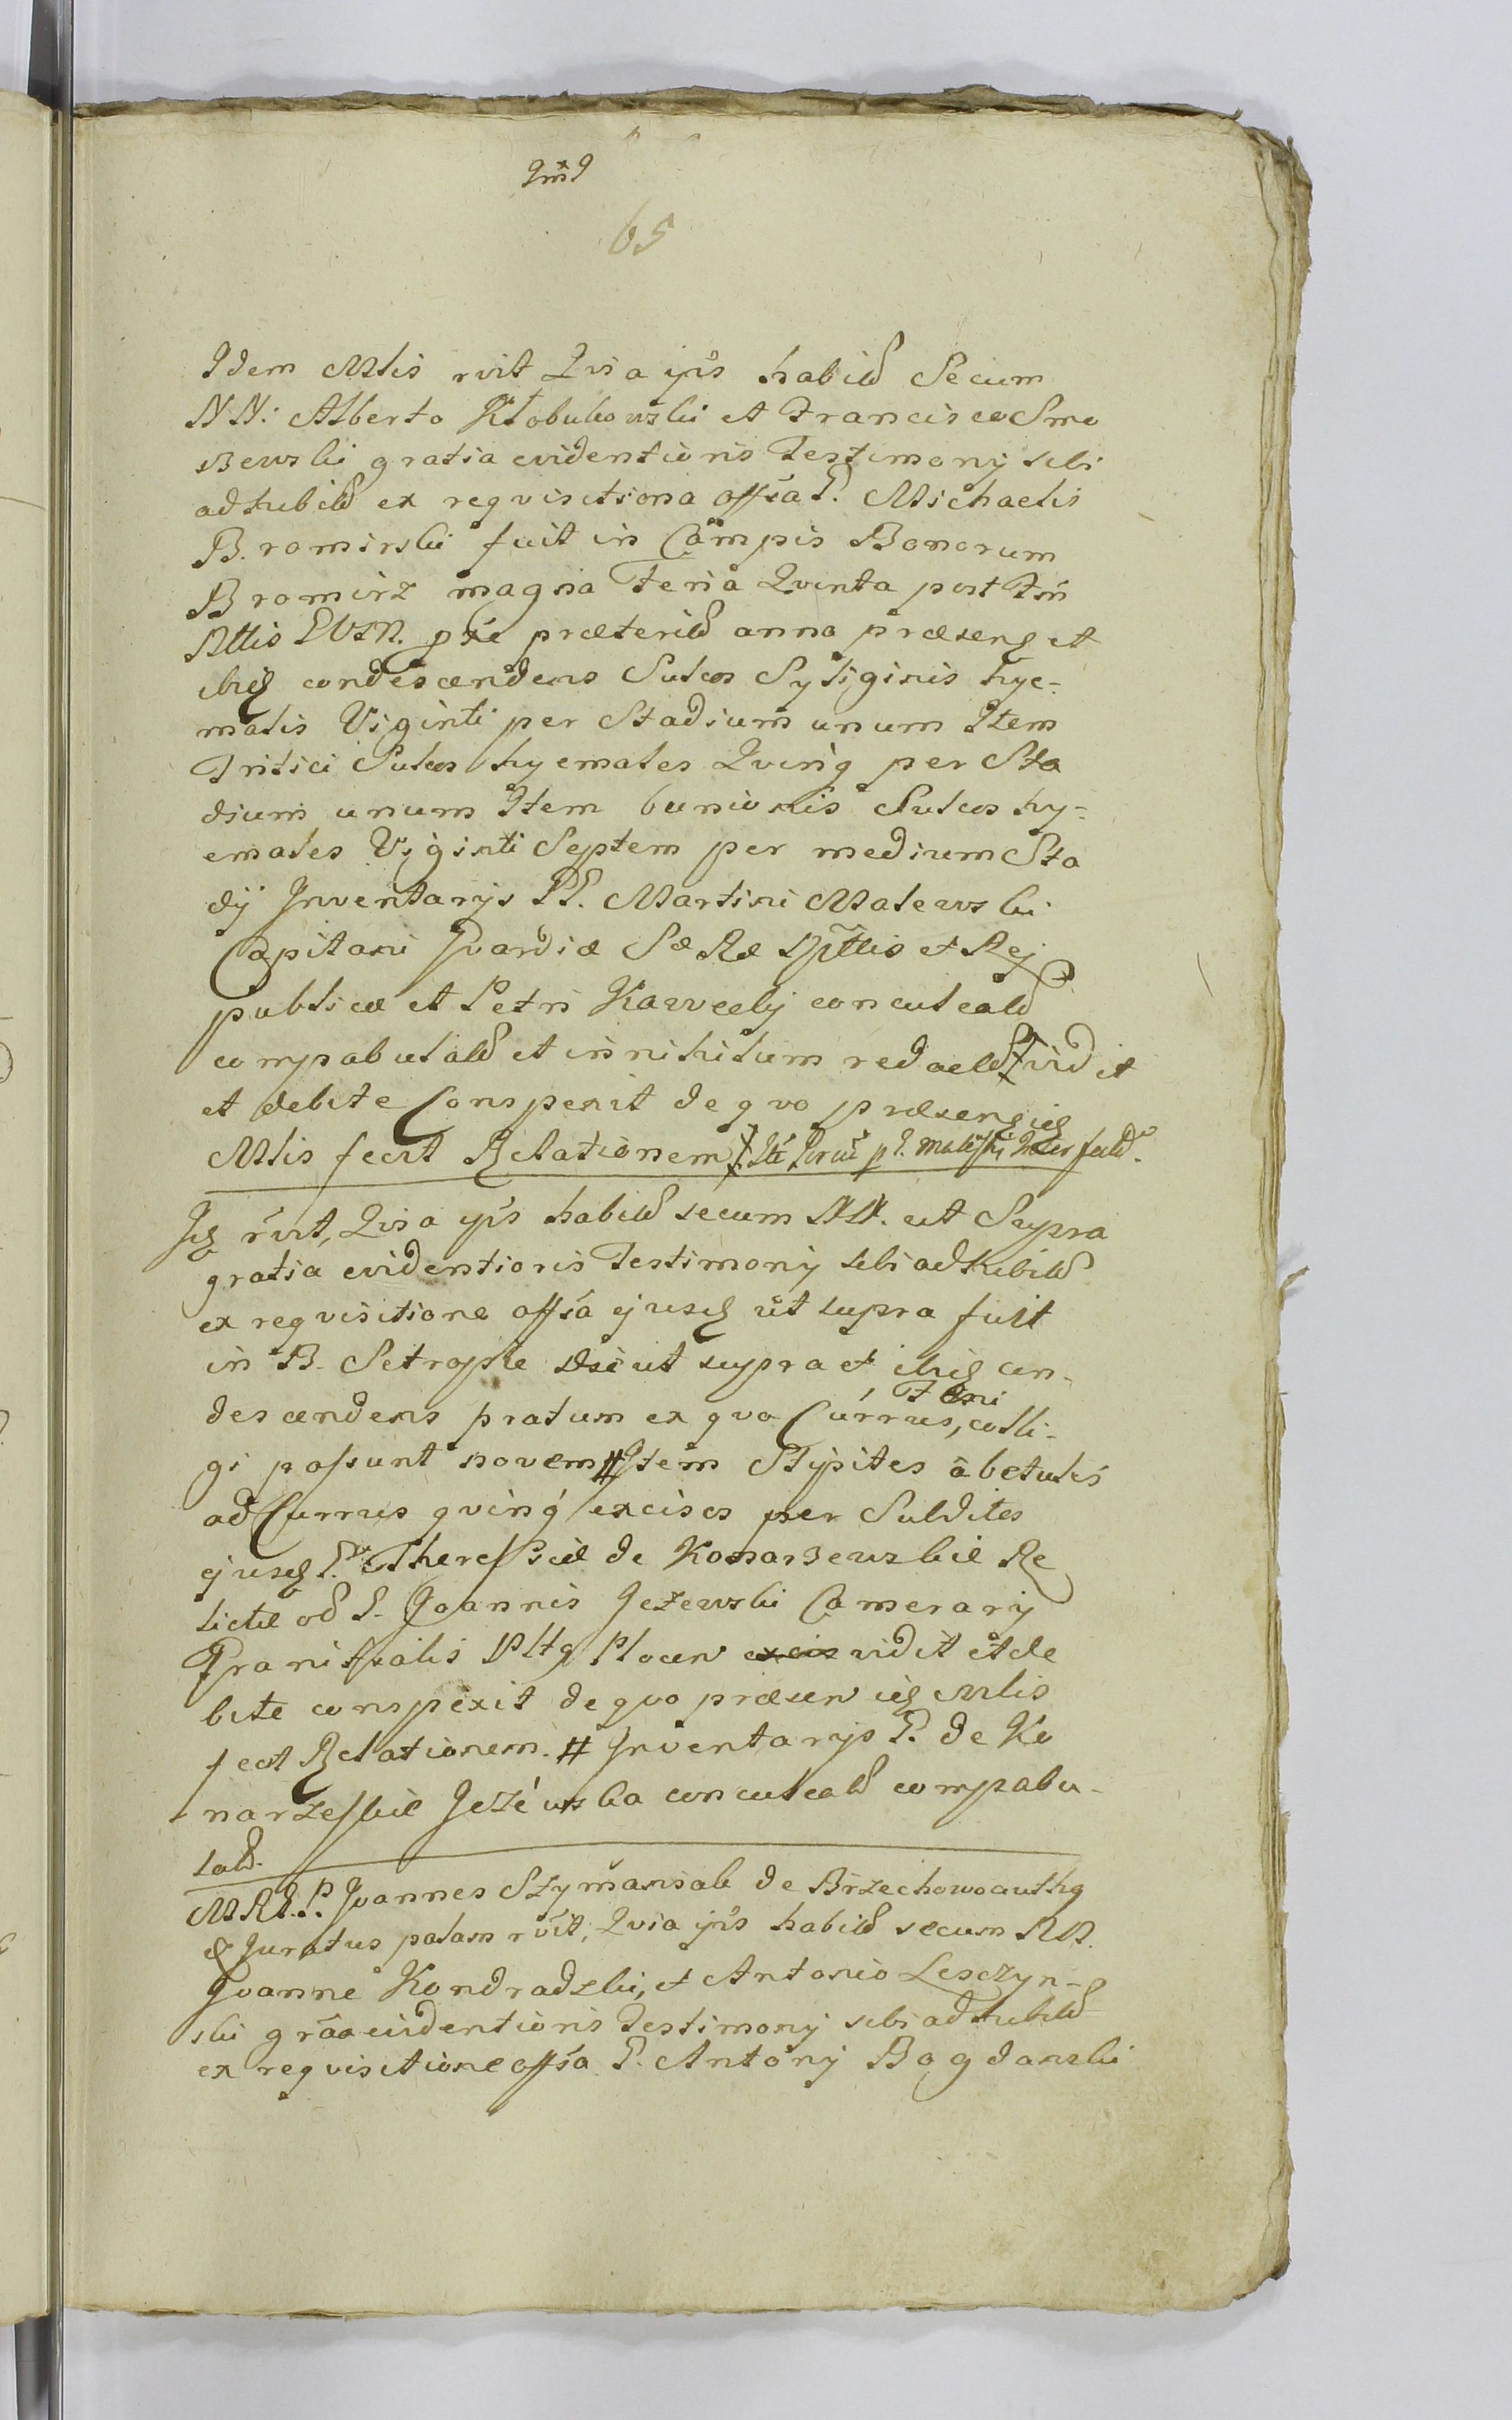 65
Idem Mlis rvit Qvia ips habitis Secum
NN: Alberto Kłobukowski et Francisco Smo
szewski gratia evidentioris Testimony sibi
adhibitis ex reqvisitiona offsa P. Michaelis
Bromirski fuit in Campis Bonorum
Bromirz magna Feria Qvinta post Fm
præterita anno præsenq et
ibiq condescendens Sulcos Syliginis hye-
malis Viginti per Stadium unum Item
Tritici Sulcos hyemales Qvinq per Sta
dium unum Item bunionis Sulcos hy-
emales Viginti Septem per medium Sta
dÿ Inventarys PP. Martini Malewski
Capitani Gvardiæ Sæ Ræ Mttis et Rei
publicæ et Petri Karwcely conculcatos
compabulatos et in nihilum redactos vidit
et debite Conspexit de qvo præsenq iq
Mlis fecit Relationem
Iq rvit, Qvia ips habitis secum NN. ut Supra
gratia evidentioris Testimony sibi adhibitis
ex reqvisitione offsa ejusq ut supra fuit
in B. Setropie die ut supra et ibiq con-
descendens pratum ex qvo Currus, Fæni colli-
gi possunt novem # Item Stipites a betulis
ad Currus qvinq excisos per Subditos
ejusq P. Theressiæ de Konarzewskie Re
lictæ od P. Joannis Jeżewski Camerary
Granitialis Pltg Plocen excis vidit et de
bite conspexit de qvo præsen iq Mlis
fecit Relationem. # Inventarys P. de Ko
narzeskie Jeżewska conculcatos compabu-
latos.
Joannes Szymansak de Brzechowo authq
et Juratus palam rvit, Qvia ips habitis secum NN.
Joanne Kondradzki, et Antonio Lesczyn-
ski graa evidentioris Testimony sibi adhibitis
ex reqvisitione offsa P. Antony Bogdanski